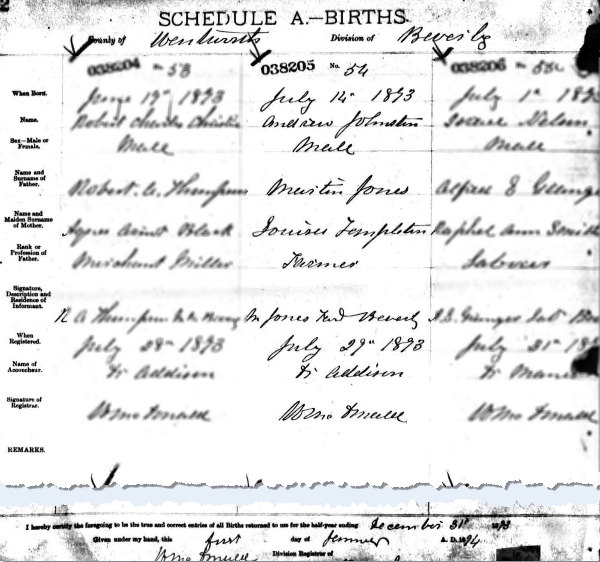 SCHEDULE A.—BIRTHS.
County of Wentworth Division of Beverly
038204 No 53 038205 No. 54 038206
When Born. June 19th 1893 July 14th 1893 July 1st 1893
Name. Robert Charles Christie Andrew Johnston Nelson
Sex—Male or Female. Male Male Male
Name and Surname of Father. Robert A. Thompson Martin Jones Alfred E
Name and Maiden Surname of Mother. Agnes Black Louisa Templeton Ann Smith
Rank or Profession of Father. Merchant Miller Farmer Laborer
Signature, Description and Residence of Informant. R A Thompson M Jones Beverly
When Registered. July 28th 1893 July 29th 1893 July 31st 189
Name of Accoucheur. Dr Addison Dr Addison Dr
Signature of Registrar. Wm Wm Wm
REMARKS.
I hereby certify the foregoing to be the true and correct entries of all Births returned to me for the half-year ending December 31st 1893
Given under my hand, this first day of January A. D. 1894
Wm
Division Registrar of